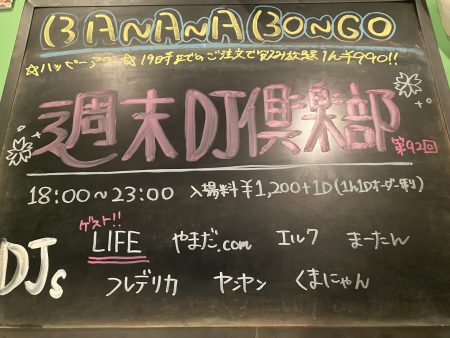 BANANA BONGO
☆ハッピーアワー☆ 19時までのご注文で飲み放題 1h¥990!!
週末DJ倶楽部 第92回
18:00〜23:00 入場料¥1,200+1D(1h1Dオーダー制)
ゲスト!!
DJs LIFE やまだ.com エルク まーたん
フレデリカ ヤンヤン くまにゃん